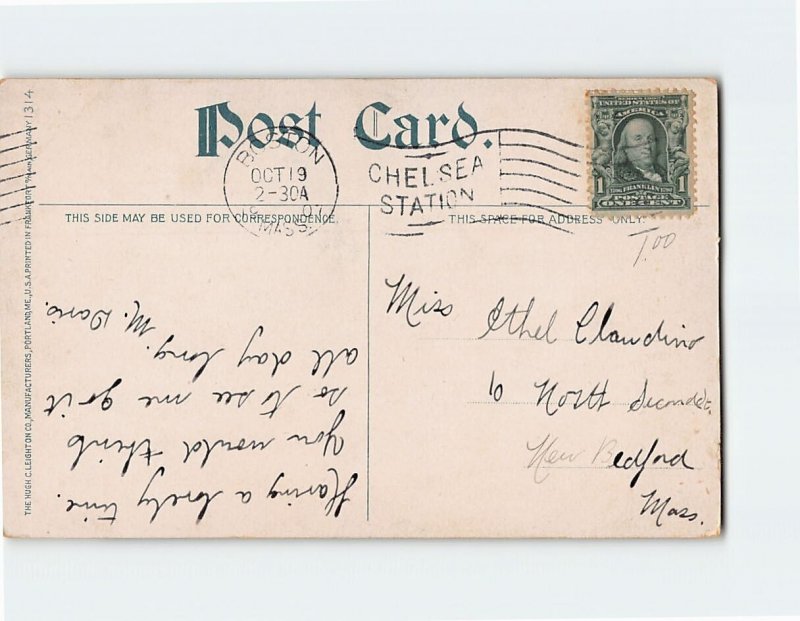 Post Card.
BOSTON
OCT 19
2-30A
MASS.
CHELSEA
STATION
UNITED STATES OF
AMERICA
1 FRANKLIN 1
POSTAGE
ONE CENT
THIS SIDE MAY BE USED FOR CORRESPONDENCE.
THIS SPACE FOR ADDRESS ONLY.
1.00
Having a lovely time.
You would think
so to see me go it
all day long.
M. Davis.
Miss Ethel Claudino
10 North Second St.
New Bedford
Mass.
THE HUGH C. LEIGHTON CO., MANUFACTURERS, PORTLAND, ME., U.S.A. PRINTED IN FRANKFORT GERMANY 1314